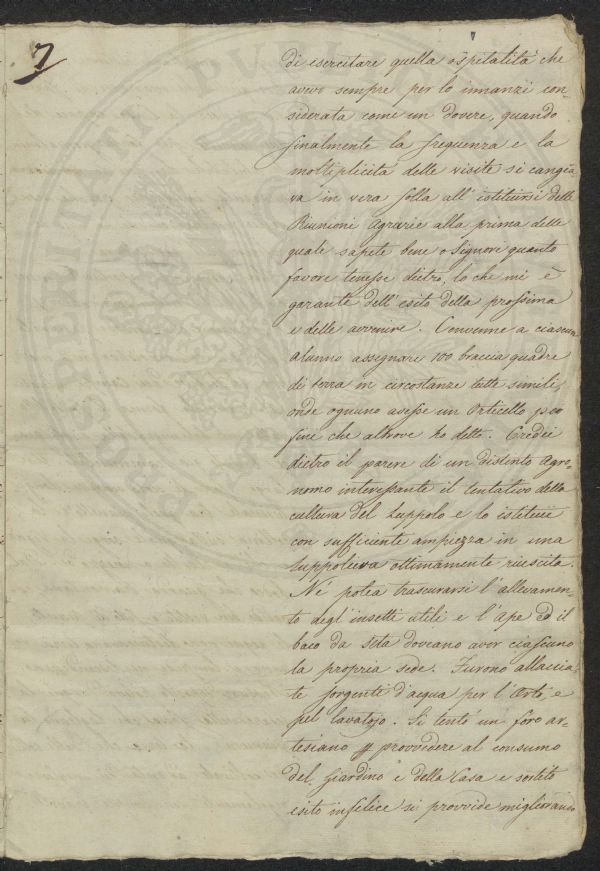 7
di esercitare quella ospitalità che
avevo sempre per lo innanzi con-
siderata come un dovere, quando
finalmente la frequenza e la
moltiplicità delle visite si cangia
va in vera folla all' istituirsi delle
Riunioni Agrarie alla prima delle
quale sapete bene o Signori quanto
favore tenesse dietro, lo che mi è
garante dell' esito della prossima
e delle avvenire. Convenne a ciascun
alunno assegnare 100 braccia quadre
di terra in circostanze tutte simili,
onde ognuno avesse un Orticello pei
fini che altrove ho detto. Credei
dietro il parere di un distinto Agro-
nomo interessante il tentativo della
cultura del Luppolo e lo istituii
con sufficiente ampiezza in una
Luppoliera ottimamente riuscita.
Né potea trascurarsi l' allevamen-
to degl' insetti utili e l' Ape ed il
baco da Seta doveano aver ciascuno
la propria sede. Furono allaccia-
te sorgenti d'acqua per l' Orto e
pel lavatojo. Si tentò un foro ar-
tesiano p provvedere al consumo
del Giardino e della Casa e sortito
esito infelice si provvide migliorando
PROSPERITATI PUBLICAE